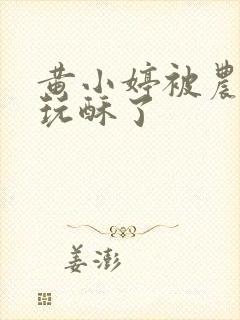 黄小婷被農
玩酥了
姜澎